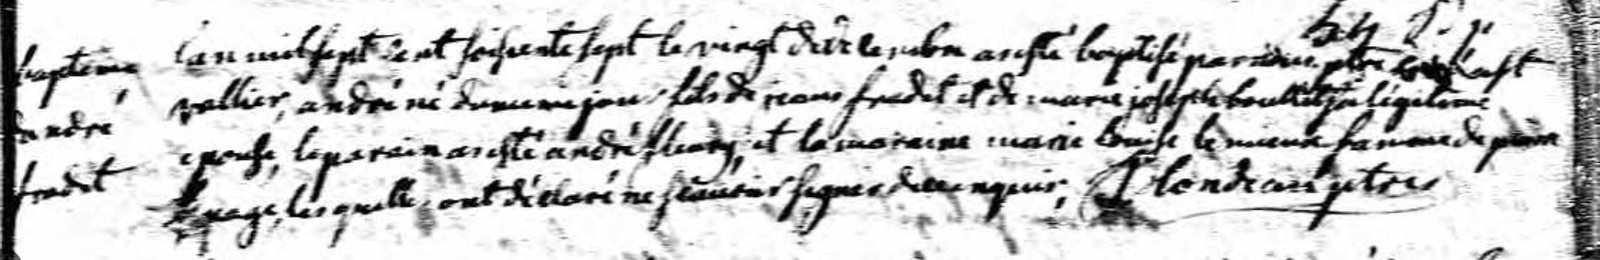 baptême
d'andré
fradet
l'an mil sept cent soisente sept le vingt décembre a esté baptisé par nous ptre à st
vallier, andré né du même jour fils de jean fradet et de marie josephe boutillet sa légitime
epouse, le parain a esté andré fleury, et la maraine marie louise le mieux famme de pierre
lepage, lesquelles ont déclaré ne sçavoir signer de ce enquis, Blondeau ptre